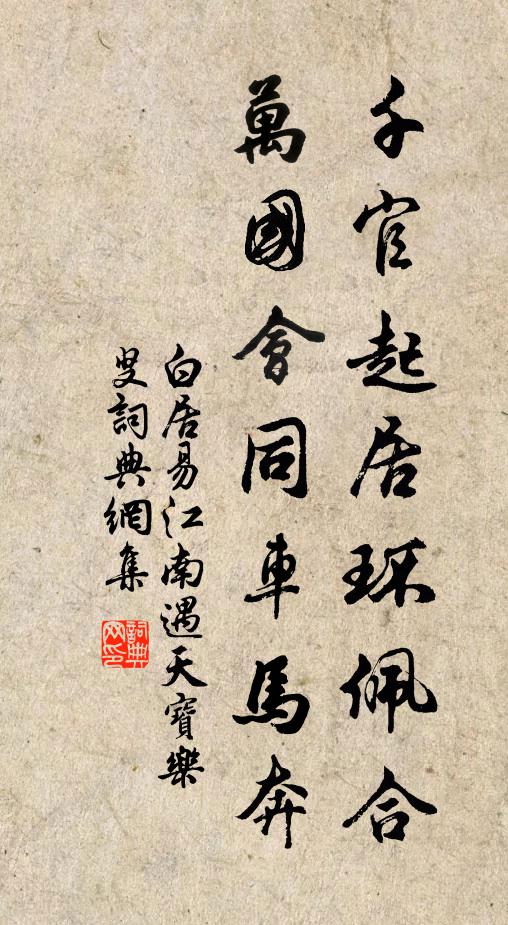 千官起居環佩合
萬國會同車馬奔
白居易江南遇天寶樂
叟詞典網集
詞典
网印